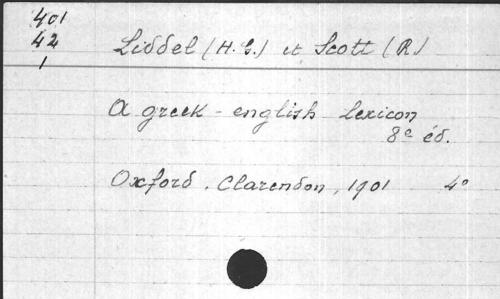 401
42
1
Liddel (H.G.) et Scott (R.)
A greek - english lexicon
8e éd.
Oxford, Clarendon, 1901 4°